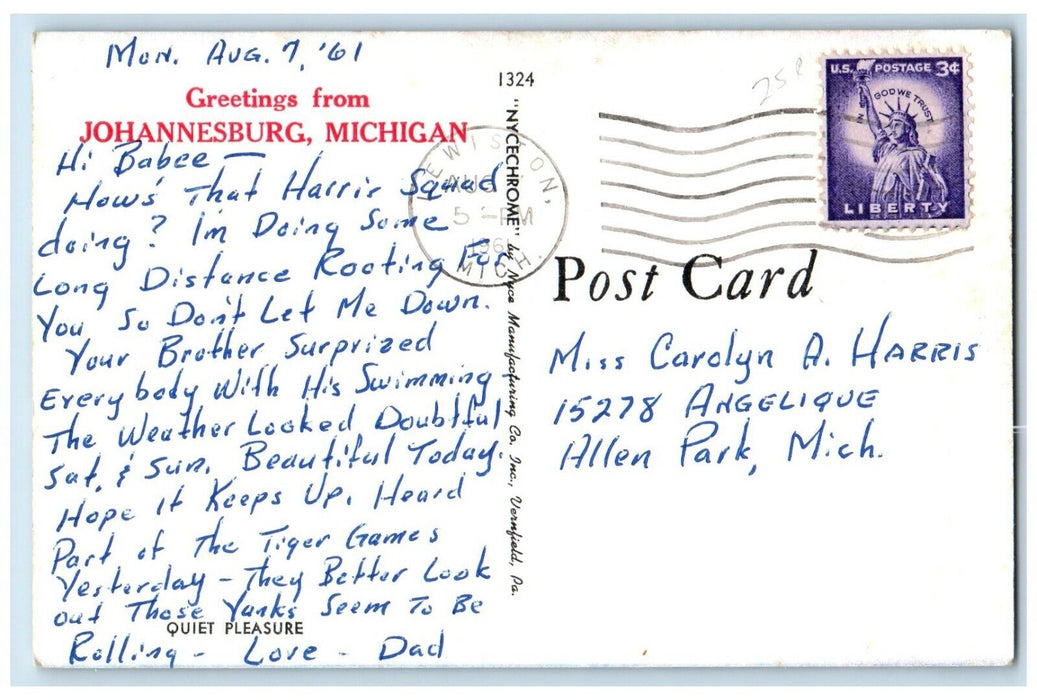 Mon. Aug. 7, '61
Greetings from
JOHANNESBURG, MICHIGAN
Hi Babee —
How's That Harris Squad
doing? I'm Doing Some
Long Distance Rooting For
You So Don't Let Me Down.
Your Brother Surprized
Everybody With His Swimming -
The Weather Looked Doubtful
Sat. & Sun. Beautiful Today.
Hope it Keeps Up. Heard
Part of The Tiger Games
Yesterday - They Better Look
out Those Yanks Seem To Be
QUIET PLEASURE
Rolling - Love - Dad
1324
"NYCECHROME" by Nyce Manufacturing Co. Inc., Vernfield, Pa.
LEWISTON,
AUG
5 - PM
MICH.
U.S. POSTAGE 3¢
IN GOD WE TRUST
LIBERTY
Post Card
Miss Carolyn A. Harris
15278 Angelique
Allen Park, Mich.